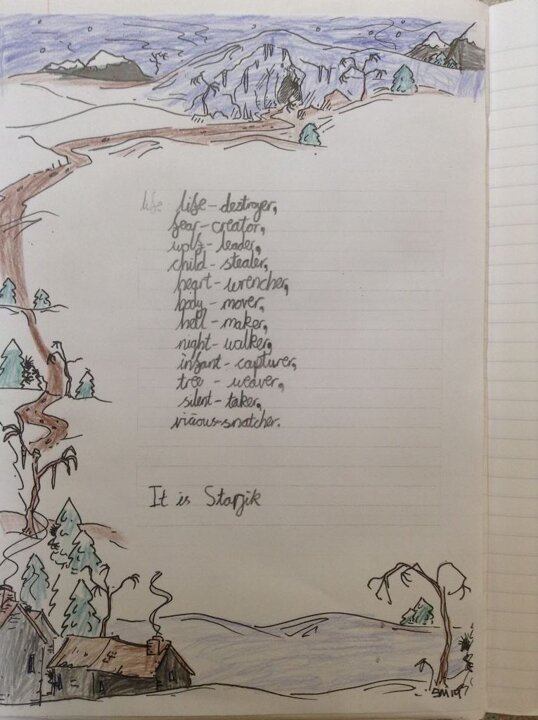 life life-destroyer,
fear-creator,
wolf-leader,
child-stealer,
heart-wrencher,
body-mover,
hell-maker,
night-walker,
infant-capturer,
tree-weaver,
silent-taker,
vicious-snatcher.
It is Stanjik